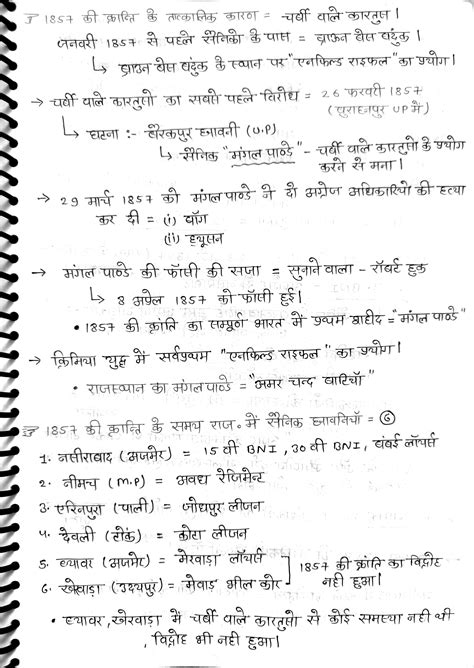 ☞ 1857 की क्रान्ति के तात्कालिक कारण = चर्बी वाले कारतूस।
जनवरी 1857 से पहले सैनिको के पास = ब्राऊन बेस बंदुक।
↳ ब्राऊन बेस बंदुक के स्थान पर "एनफिल्ड राइफल" का प्रयोग।
→ चर्बी वाले कारतुसो का सबसे पहले विरोध = 26 फरवरी 1857
(बुराहनपुर UP में)
↳ घटना :- बैरकपुर छावनी (U.P)
↳ सैनिक "मंगल पाण्डे" - चर्बी वाले कारतुसो के प्रयोग
करने से मना।
→ 29 मार्च 1857 को मंगल पाण्डे ने दो अंग्रेज अधिकारियो की हत्या
कर दी = (i) बॉग
(ii) ह्यूसन
→ मंगल पाण्डे की फाँसी की सजा = सुनाने वाला - रॉबर्ट हुक
↳ 8 अप्रेल 1857 को फाँसी हुई।
• 1857 की क्रांति का सम्पूर्ण भारत में प्रथम शहीद = "मंगल पाण्डे"
→ क्रिमिया युद्ध में सर्वप्रथम "एनफिल्ड राइफल" का प्रयोग।
• राजस्थान का मंगल पाण्डे = "अमर चन्द बाठियाँ"
☞ 1857 की क्रान्ति के समय राज. में सैनिक छावनियाँ = ⑥
1. नसीराबाद (अजमेर) = 15 वी BNI, 30 वी BNI, बंबई लॉचर्स
2. नीमच (M.P) = अवध रेजिमेन्ट
3. एरिनपुरा (पाली) = जोधपुर लीजन
4. देवली (टोंक) = कोटा लीजन
5. ब्यावर (अजमेर) = मेरवाड़ा लॉचर्स
6. खेरवाड़ा (उदयपुर) = मेवाड़ भील कोर
1857 की क्रांति का विद्रोह
नही हुआ।
• ब्यावर, खेरवाड़ा में चर्बी वाले कारतुसो से कोई समस्या नही थी
, विद्रोह भी नही हुआ।